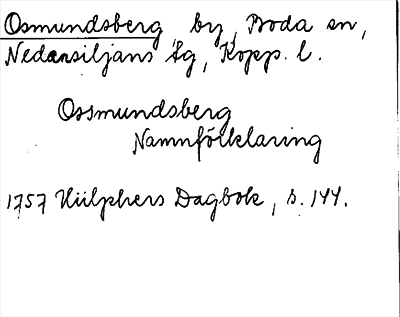 Osmundsberg, by, Boda sn,
Nedansiljans tg, Kopp. l.
Ossmundsberg
Namnförklaring
1757 Hülphers Dagbok, s. 144.